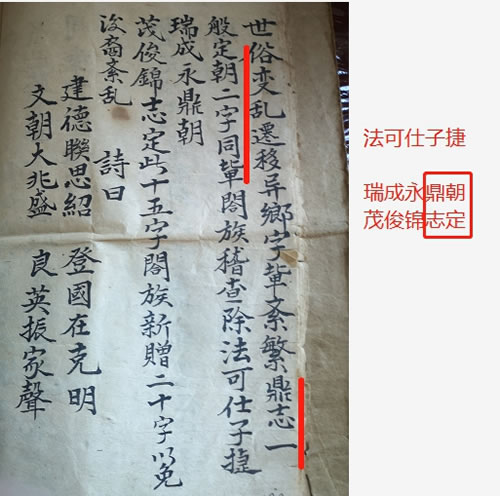 世俗变乱遷移异鄉字軰紊繁鼎志一
般定朝二字同軰閤族稽查除法可仕子捷
瑞成永鼎朝
茂俊錦志定此十五字閤族新贈二十字以免
浚裔紊乱 詩曰
建德思紹 登國在克明
文朝大兆盛 良英振家聲
法可仕子捷
瑞成永鼎朝
茂俊锦志定